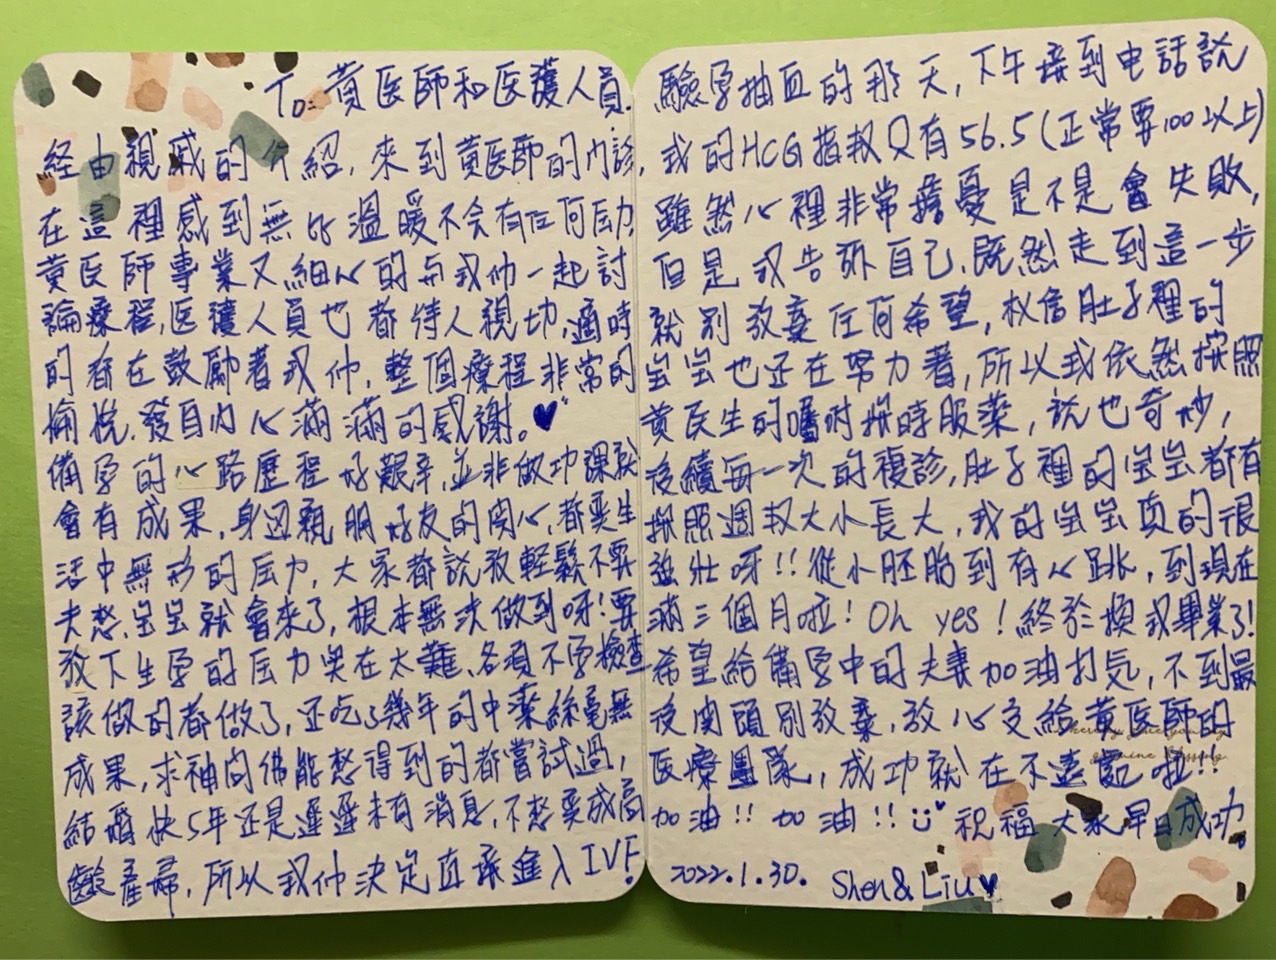 To: 黃医師和医護人員.
経由親戚的介紹, 來到黃医師的內診,
在這裡感到無比溫暖不会有任何压力
黃医師專業又細心的与我们一起討
論療程, 医護人員也都待人親切, 適時
的都在鼓勵著我们, 整個療程非常的
愉悅, 發自內心滿滿的感謝。
備孕的心路歷程好艱辛, 並非做功課就
會有成果, 身边親朋好友的関心, 都要生
活中無形的压力, 大家都說放輕鬆不要
去想, 宝宝就會來了, 根本無法做到呀! 要
放下生孕的压力实在太難, 各項不孕檢查
該做的都做了, 还吃了幾年的中藥絲毫無
成果, 求神问佛能想得到的都嘗試過,
結婚快5年还是遲遲未有消息, 不想要成高
齡產婦, 所以我们決定直接進入IVF!
驗孕抽血的那一天, 下午接到电話說
我的HCG指数只有56.5(正常要100以上)
雖然心裡非常擔憂是不是會失敗,
但是我告訴自己, 既然走到這一步
就別放棄任何希望, 相信肚子裡的
宝宝也还在努力著, 所以我依然按照
黃医生的囑咐按時服藥, 說也奇妙,
後續每一次的複診, 肚子裡的宝宝都有
按照週数大小長大, 我的宝宝真的很
強壯呀!! 從小胚胎到有心跳, 到現在
滿三個月啦! Oh yes! 終於換我畢業了!
希望給備孕中的夫妻加油打気, 不到最
後関頭別放棄, 放心交給黃医師的
医療團隊, 成功就在不遠處啦!!
加油!! 加油!! 祝福大家早日成功
2022.1.30. Shen & Liu